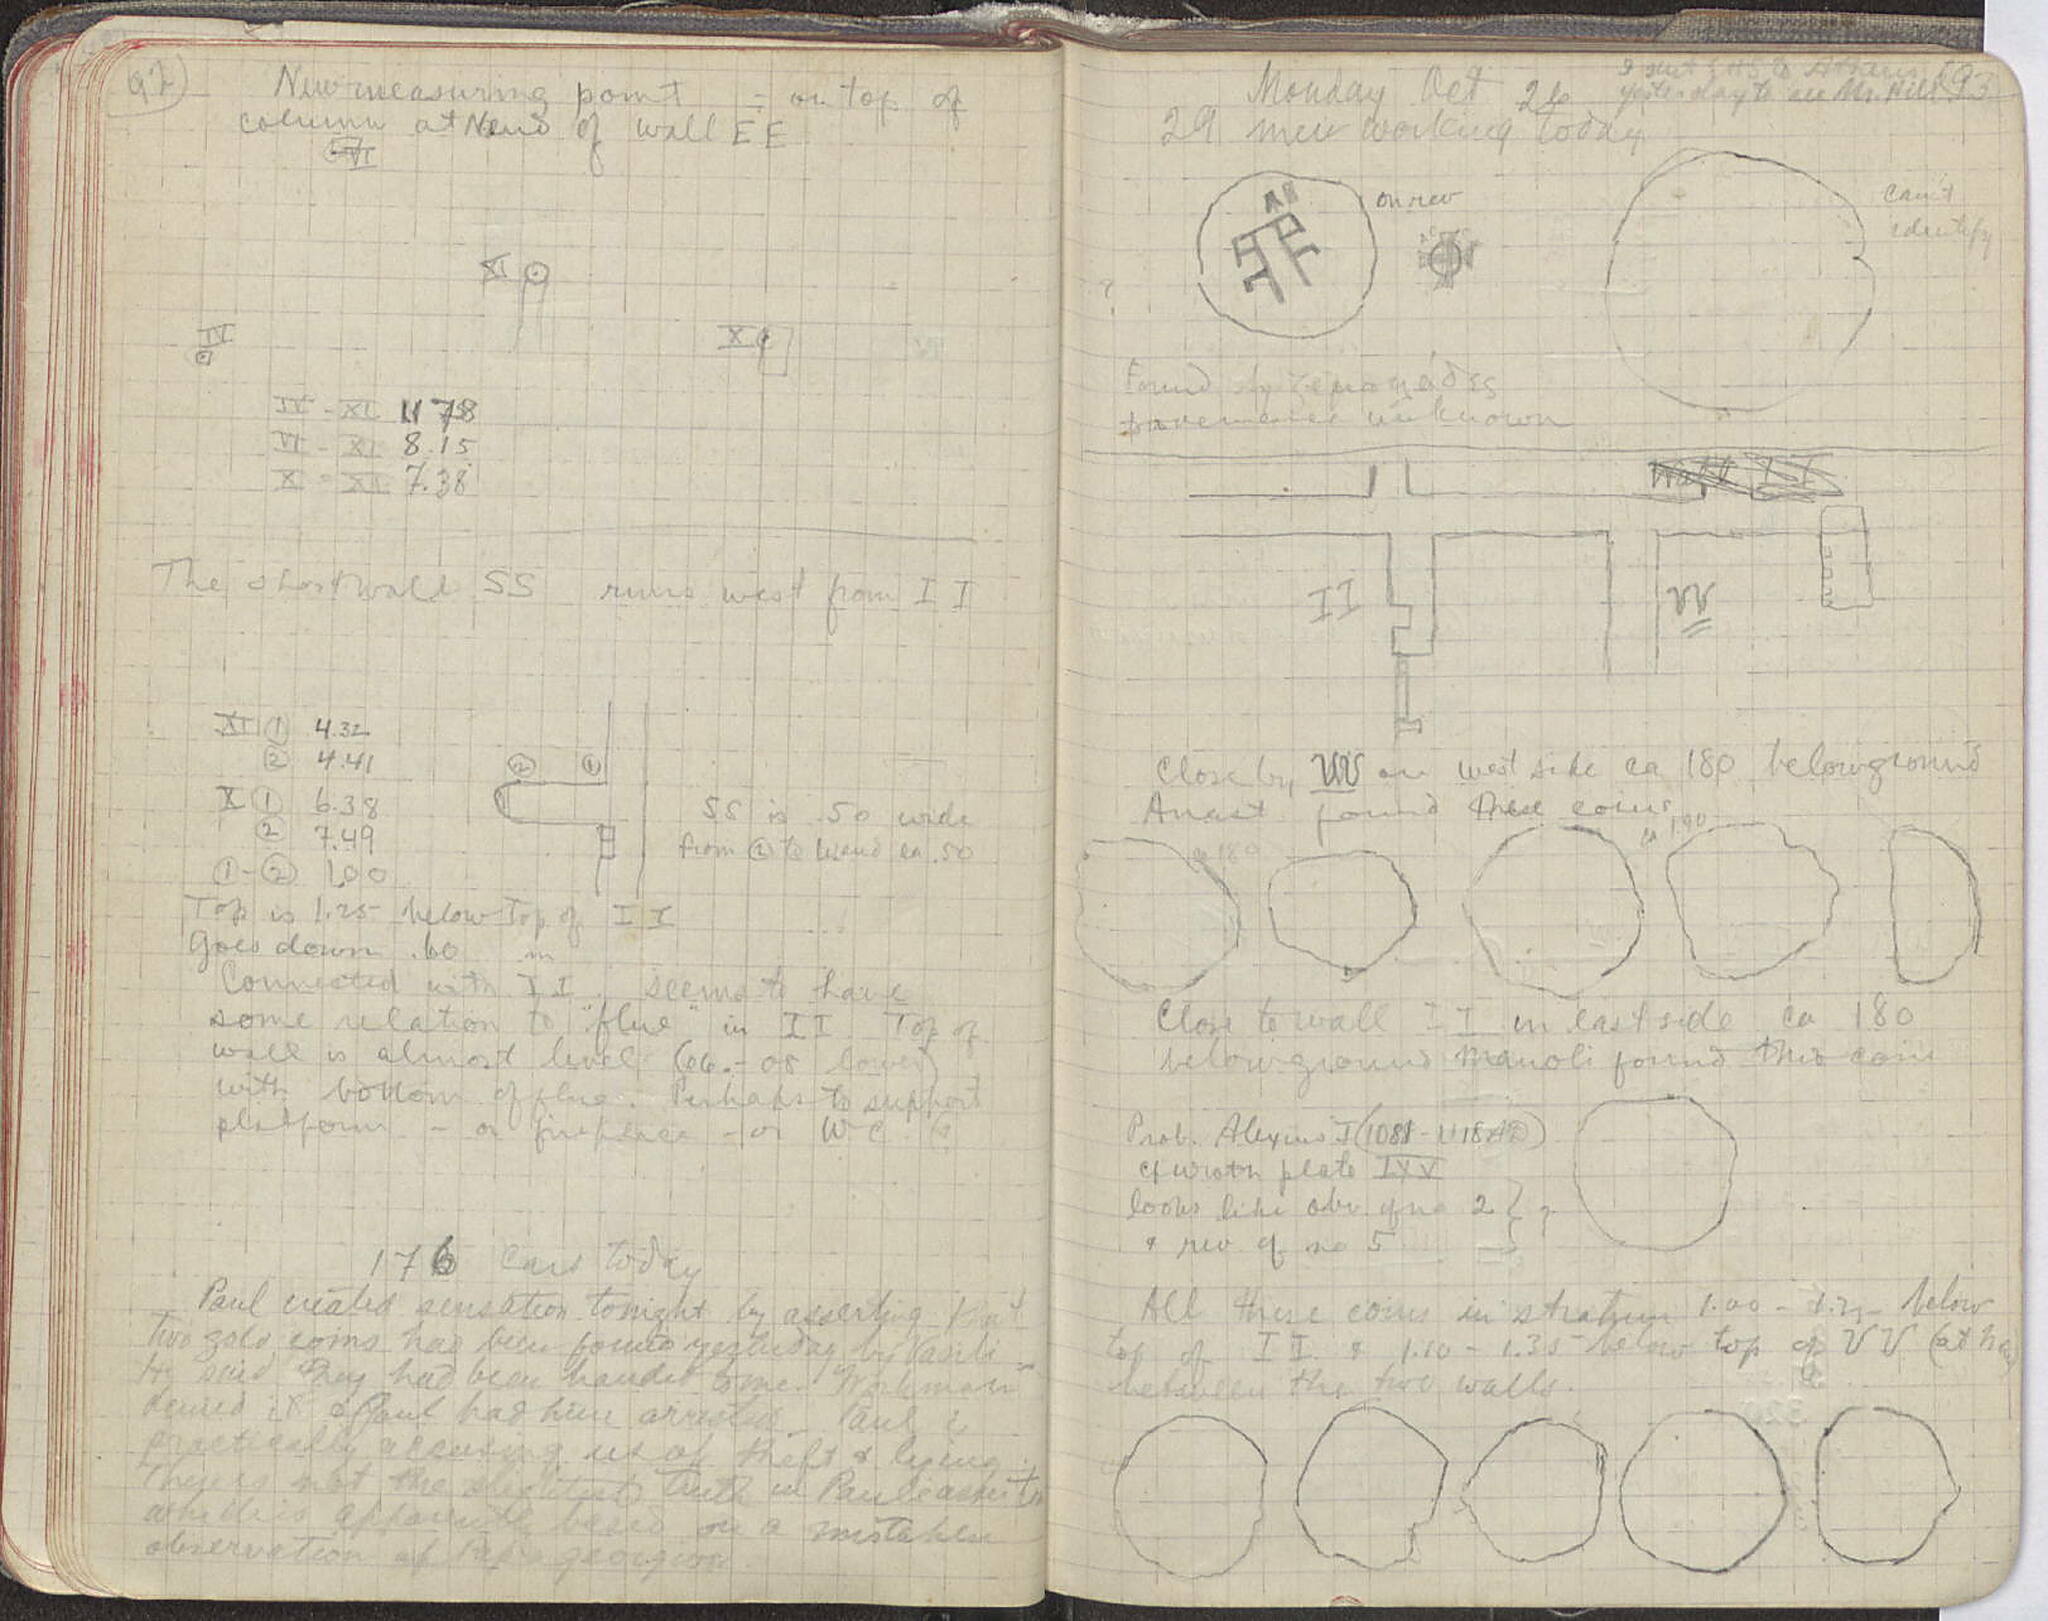 92
New measuring point = on top of
column at N end of wall EE
VI
XI
IV
X
IV - XI 11 78
VI - XI 8.15
X - XI 7.38
The short wall SS runs west from II
XI ① 4.32
② 4.41
X ① 6.38
② 7.49
①-② 1.00
② ①
SS is .50 wide
from ② to bend ca .50
Top is 1.25 below top of II
Goes down .60 m
Connected with II. Seems to have
some relation to "flue" in II Top of
wall is almost level (06 - 08 lower)
with bottom of flue. Perhaps to support
platform - or fireplace - or WC
176 cars today
Paul created sensation tonight by asserting that
two gold coins had been found yesterday by Vasili
He said they had been handed to me. Workman
denied it & Paul had him arrested. Paul is
practically accusing us of theft & lying.
There is not the slightest truth in Paul's
which is apparently based on a mistaken
observation of Papageorgiou
93
Monday Oct 26
I sent to Athens
yesterday to see Mr. Hill
29 men working today
on rev
can't
identify
?
Found by
provenance unknown
Wall II
II
VV
Close by VV on west side ca 180 below ground
Anast found these coins
ca 180
ca 1.90
Close to wall II in east side ca 180
below ground Manoli found this coin
Prob. Alexius I (1081-1118 AD)
cf wroth plate LXV
looks like obv of no 2 } ?
& rev of no 5
All these coins in stratum 1.00 - 1.25 below
top of II & 1.10 - 1.35 below top of VV (at
between the two walls.